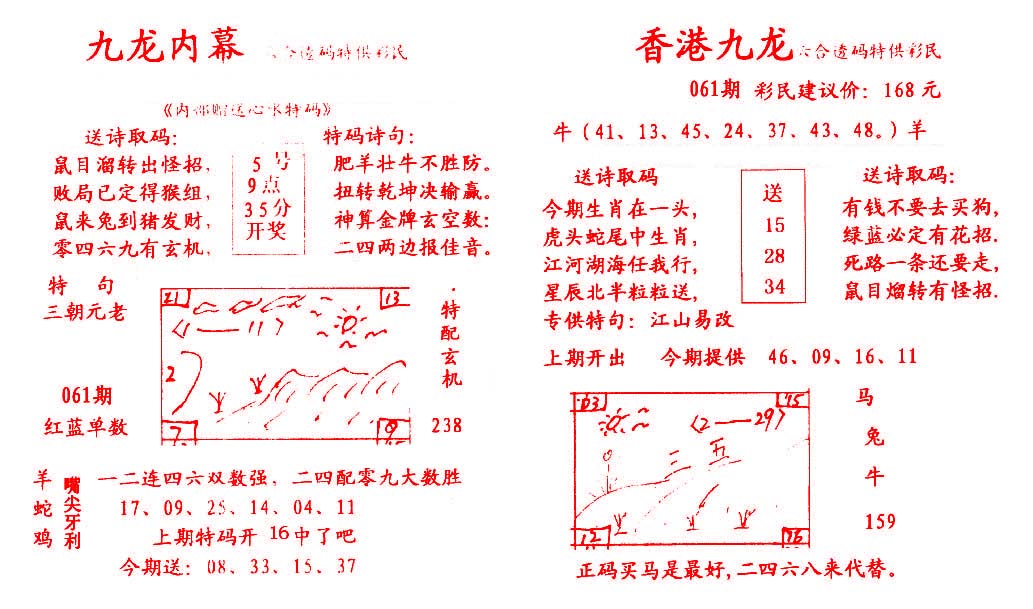 九龙内幕 六合透码特供彩民
《内部赠送心水特码》
送诗取码:
鼠目溜转出怪招,
败局已定得猴组,
鼠来兔到猪发财,
零四六九有玄机,
5 号
9 点
35分
开奖
特码诗句:
肥羊壮牛不胜防。
扭转乾坤决输赢。
神算金牌玄空数:
二四两边报佳音。
特 句
三朝元老
061期
红蓝单数
21
13
<1——11>
2
7
9
特配玄机
238
羊蛇鸡
嘴尖牙利
一二连四六双数强, 二四配零九大数胜
17、09、25、14、04、11
上期特码开 16中了吧
今期送: 08、33、15、37
香港九龙 六合透码特供彩民
061期 彩民建议价: 168 元
牛 (41、13、45、24、37、43、48。) 羊
送诗取码
今期生肖在一头,
虎头蛇尾中生肖,
江河湖海任我行,
星辰北半粒粒送,
专供特句: 江山易改
送
15
28
34
送诗取码:
有钱不要去买狗,
绿蓝必定有花招.
死路一条还要走,
鼠目熘转有怪招.
上期开出 今期提供 46、09、16、11
03
15
<2——29>
三 五
12
16
马
兔
牛
159
正码买马是最好,二四六八来代替。